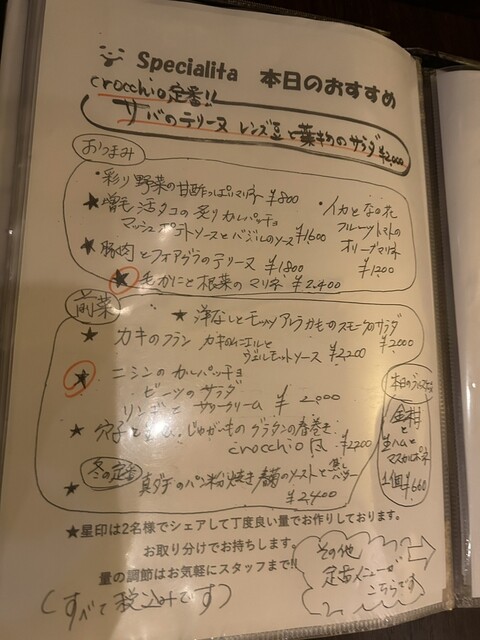 Specialita 本日のおすすめ
crocchio定番!!
サバのテリーヌ レンズ豆と葉物のサラダ ¥2,000
おつまみ
・彩り野菜の甘酢っぱいマリネ ¥800
★増毛 活タコの炙りカルパッチョ
マッシュポテトソースとバジルのソース ¥1600
★豚肉とフォアグラのテリーヌ ¥1800
★毛がにと根菜のマリネ ¥2,400
・イカと菜の花
フルーツトマトの
オリーブマリネ
¥1200
前菜
★ 洋なしとモッツァレラかものスモークのサラダ
¥2,000
★ カキのフラン カキのムニエルと
ヴェルモットソース ¥2,200
★ ニシンのカルパッチョ
ビーツのサラダ
リンゴとサワークリーム ¥2,000
★ 穴子と じゃがいものグラタンの春巻き
crocchio風 ¥2200
冬の定番
★ 真ダチのパン粉焼き のソースと焦しバター
¥2,400
本日の
金柑
と
生ハムと
マスカルポーネ
1個¥660
★星印は2名様でシェアして丁度良い量でお作りしております。
お取り分けでお持ちします。
量の調節はお気軽にスタッフまで!!
(すべて税込みです)
その他
定番メニューが
こちらです